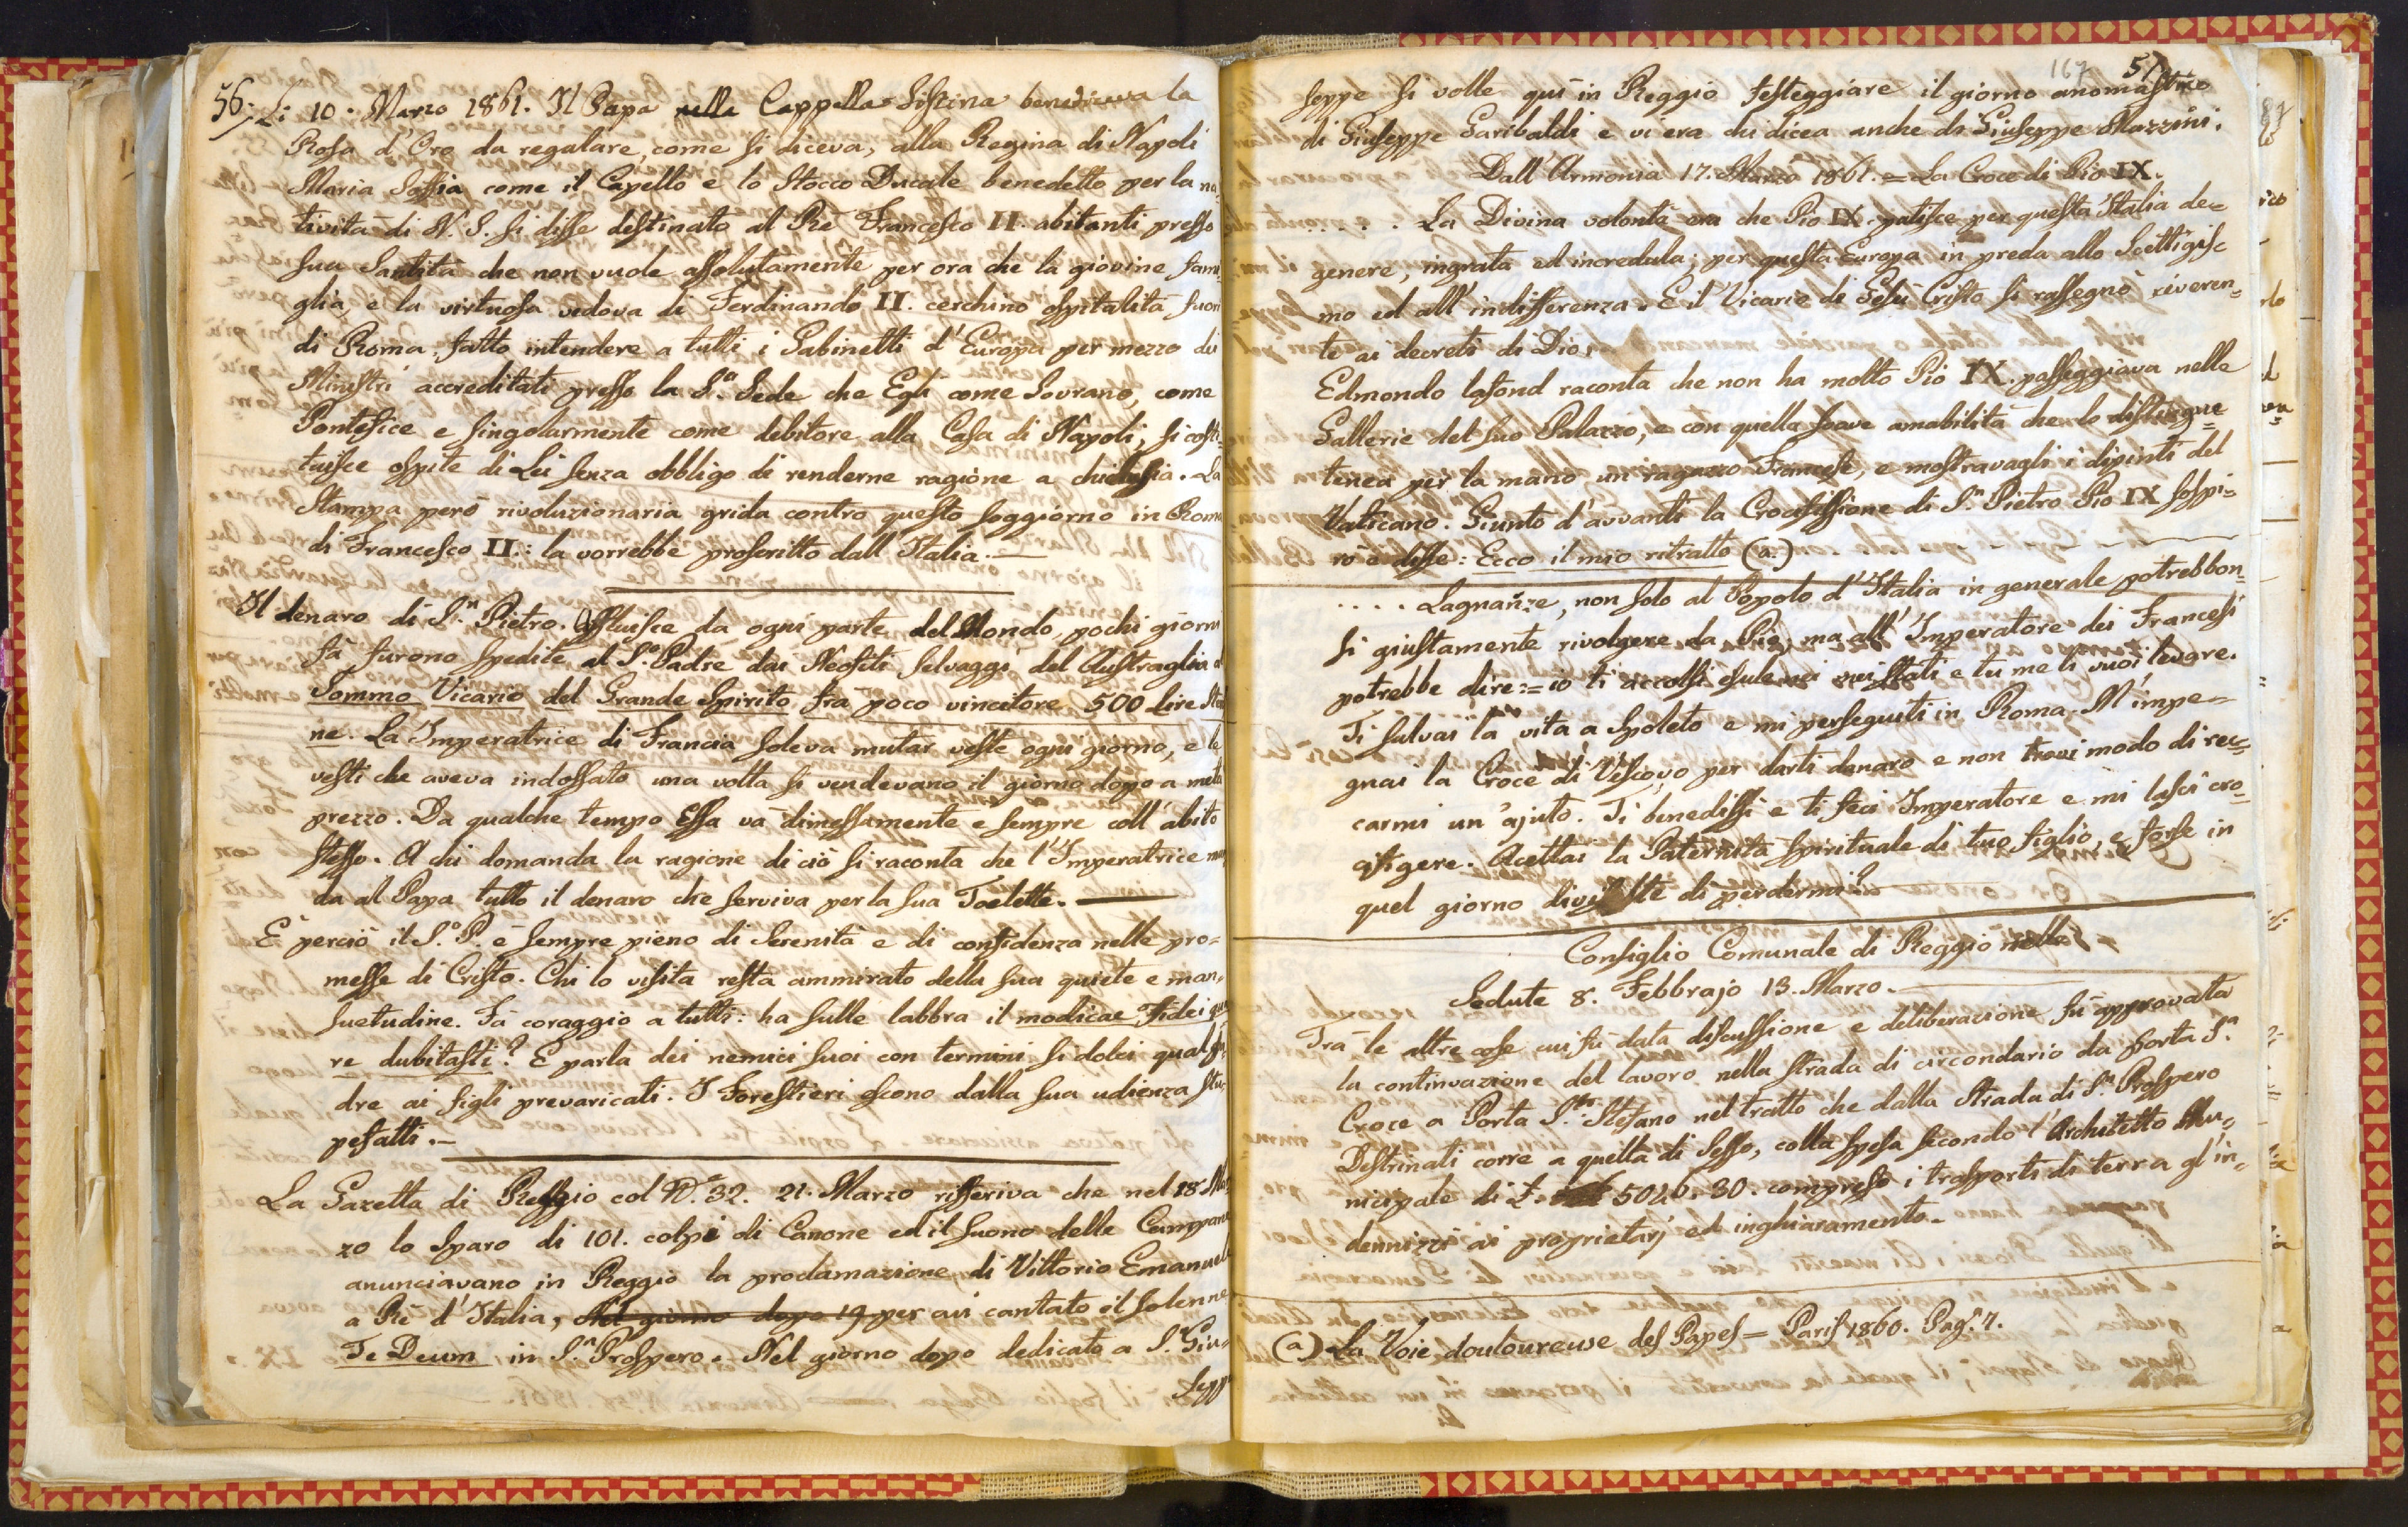 56/ Li 10. Marzo 1861. Il Papa nella Cappella Sistina benediceva la
Rosa d'Oro da regalare, come si diceva, alla Regina di Napoli
Maria Soffia come il Capello e lo Stocco Ducale benedetto per la na-
tività di N. S. si disse destinato al Rè Francesco II. abitanti presso
Sua Santità che non vuole assolutamente per ora che la giovine fami-
glia, e la virtuosa vedova di Ferdinando II. cerchino ospitalità fuori
di Roma, fatto intendere a tutti i Gabinetti d'Europa per mezzo dei
Ministri accreditati presso la S.a Sede che Egli come Sovrano, come
Pontefice e singolarmente come debitore alla Casa di Napoli, si costi-
tuisce ospite di Lei senza obbligo di renderne ragione a chichesia. La
Stampa però rivoluzionaria grida contro questo soggiorno in Roma
di Francesco II.: la vorrebbe proscritto dall'Italia.—
Il denaro di S.n Pietro. Affluisce da ogni parte del Mondo, pochi giorni
fà furono spedite al S.o Padre dai Neofiti selvaggi del Australia al
Sommo Vicario del Grande Spirito frà poco vincitore 500 Lire Ster
ne. La Imperatrice di Francia soleva mutar veste ogni giorno, e le
vesti che aveva indossato una volta si vendevano il giorno dopo a metà
prezzo. Da qualche tempo Essa và dimessamente e sempre coll'abito
stesso. A chi domanda la ragione di ciò si raconta che l'Imperatrice man
da al Papa tutto il denaro che serviva per la sua Toelette.—
E perciò il S.o P. è sempre pieno di Serenità e di confidenza nelle pro=
messe di Cristo. Chi lo visita resta ammirato della sua quiete e man-
suetudine. Fà coraggio a tutti: ha sulle labbra il modicae Fidei qua
re dubitasti? E parla dei nemici suoi con termini si dolci qual Pa-
dre ai figli prevaricati. I Forestieri escono dalla sua udienza stu-
pefatti.—
La Gazetta di Reggio col N.o 32. 21. Marzo rifferiva che nel 18. Mar
zo lo sparo di 101. colpi di Canone ed il suono delle Campane
anunciavano in Reggio la proclamazione di Vittorio Emanuele
a Rè d'Italia, Nel giorno dopo 19 per cui cantato il solenne
Te Deum in S.n Prospero. Nel giorno dopo dedicato a S. Giu-
seppe
167 57
seppe si volle quì in Reggio festeggiare il giorno anomastico
di Giuseppe Garibaldi e vi era chi dicea anche di Giuseppe Mazzini.
Dall'Armonia 17. Marzo 1861. = La Croce di Pio IX.
. . . . . La Divina volontà era che Pio IX. patisce per questa Italia de=
genere, ingrata ed incredula; per questa Europa in preda allo Scettigis
mo ed all'indifferenza. E il Vicario di Gesù Cristo si rassegnò riveren-
te ai decreti di Dio.
Edmondo lafond raconta che non ha molto Pio IX. passeggiava nelle
Gallerie del suo Palazzo, e con quella soave amabilità che lo distingue
tenea per la mano un ragazzo Francese, e mostravagli i dipinti del
Vaticano. Giunto d'avvanti la Crocifissione di S.n Pietro Pio IX sospi=
rò e disse: Ecco il mio ritratto (a.)
. . . . Lagnanze, non solo al Popolo d'Italia in generale potrebbon-
si giustamente rivolgere da Pio, ma all'Imperatore dei Francesi
potrebbe dire:= io ti accolsi esule nei miei stati e tu me li vuoi levare.
Ti salvai la vita a Spoleto e mi perseguiti in Roma. M'impe=
gnai la Croce di Vescovo per darti denaro e non trovi modo di rec=
carmi un'ajuto. Ti benedissi e ti feci Imperatore e mi lasci cro-
cifigere. Acettai la Paternità spirituale di tuo figlio, e forse in
quel giorno di perdermi?
Consiglio Comunale di Reggio nelle
Sedute 8. Febbrajo 13. Marzo.
Trà le altre cose cui fù data discussione e deliberazione fù approvata
la continvazione del lavoro nella strada di circondario da porta S.a
Croce a Porta S.to Stefano nel tratto che dalla Strada di S.n Prospero
Destrinati corre a quella di Sesso, colla spesa secondo l'Architetto Mu-
nicipale di £. 5026. 30. compreso i trasporti di terra gl'in-
dennizzi ai proprietarj ed inghiaramento.
(a) La Voie douloureuse des Papes = Paris 1860. Pag. 7.